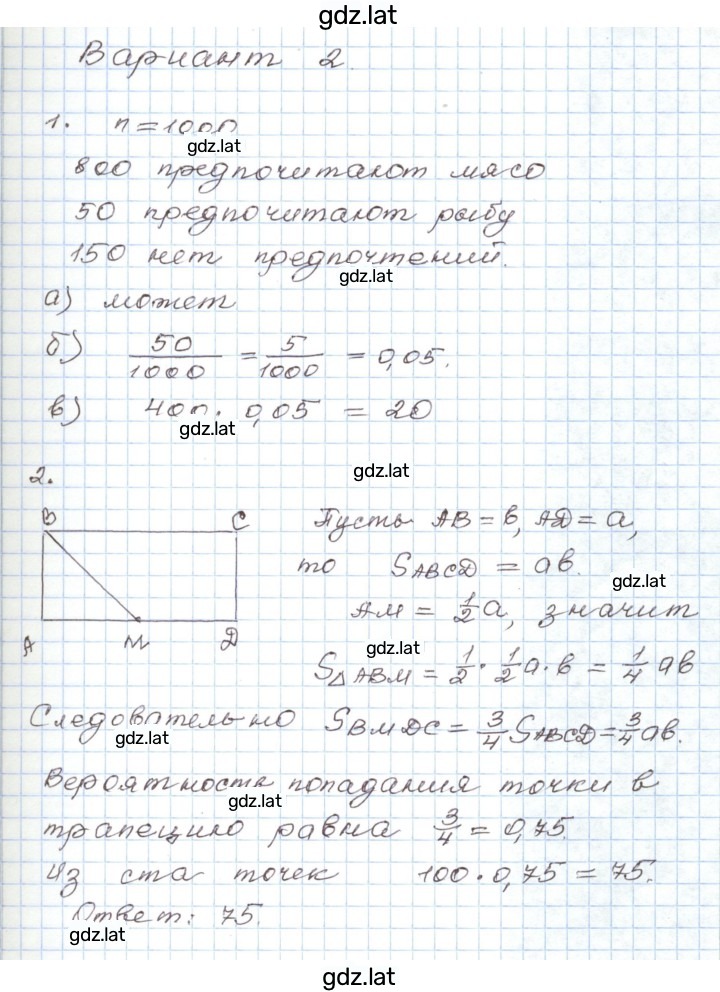 gdz.lat
Вариант 2.
1. n = 1000
gdz.lat
800 предпочитают мясо
50 предпочитают рыбу
150 нет предпочтений.
gdz.lat
а) может
б) 50/1000 = 5/1000 = 0,05.
в) 400 · 0,05 = 20
gdz.lat
2.
gdz.lat
B C
A M D
Пусть AB = b, AD = a,
то S ABCD = ab.
gdz.lat
AM = 1/2 a, значит
gdz.lat
S△ABM = 1/2 · 1/2 a · b = 1/4 ab
Следовательно S BMDC = 3/4 S ABCD = 3/4 ab.
gdz.lat
Вероятность попадания точки в
gdz.lat
трапецию равна 3/4 = 0,75.
Из ста точек 100 · 0,75 = 75.
Ответ: 75.
gdz.lat
gdz.lat